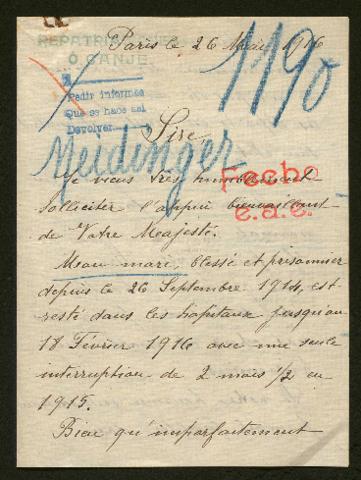 REPATRIACIONES
Ó CANJE.
Paris le 26 Mai 1916
1190
Pedir informes
Que se haga así
Devolver.
Sire
Meidinger
Je viens très humblement
Hecho
solliciter l'appui bienveillant
e.a.e.
de Votre Majesté.
Mon mari, blessé et prisonnier
depuis le 26 Septembre 1914, est
resté dans les hôpitaux jusqu'au
18 Février 1916 avec une seule
interruption de 2 mois 1/2 en
1915.
Bien qu'imparfaitement